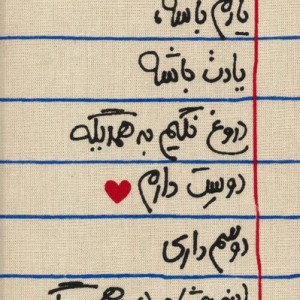 یادم باشه،
یادت باشه
دروغ نگیم به همدیگه
دوسِت دارم
دوسم داری